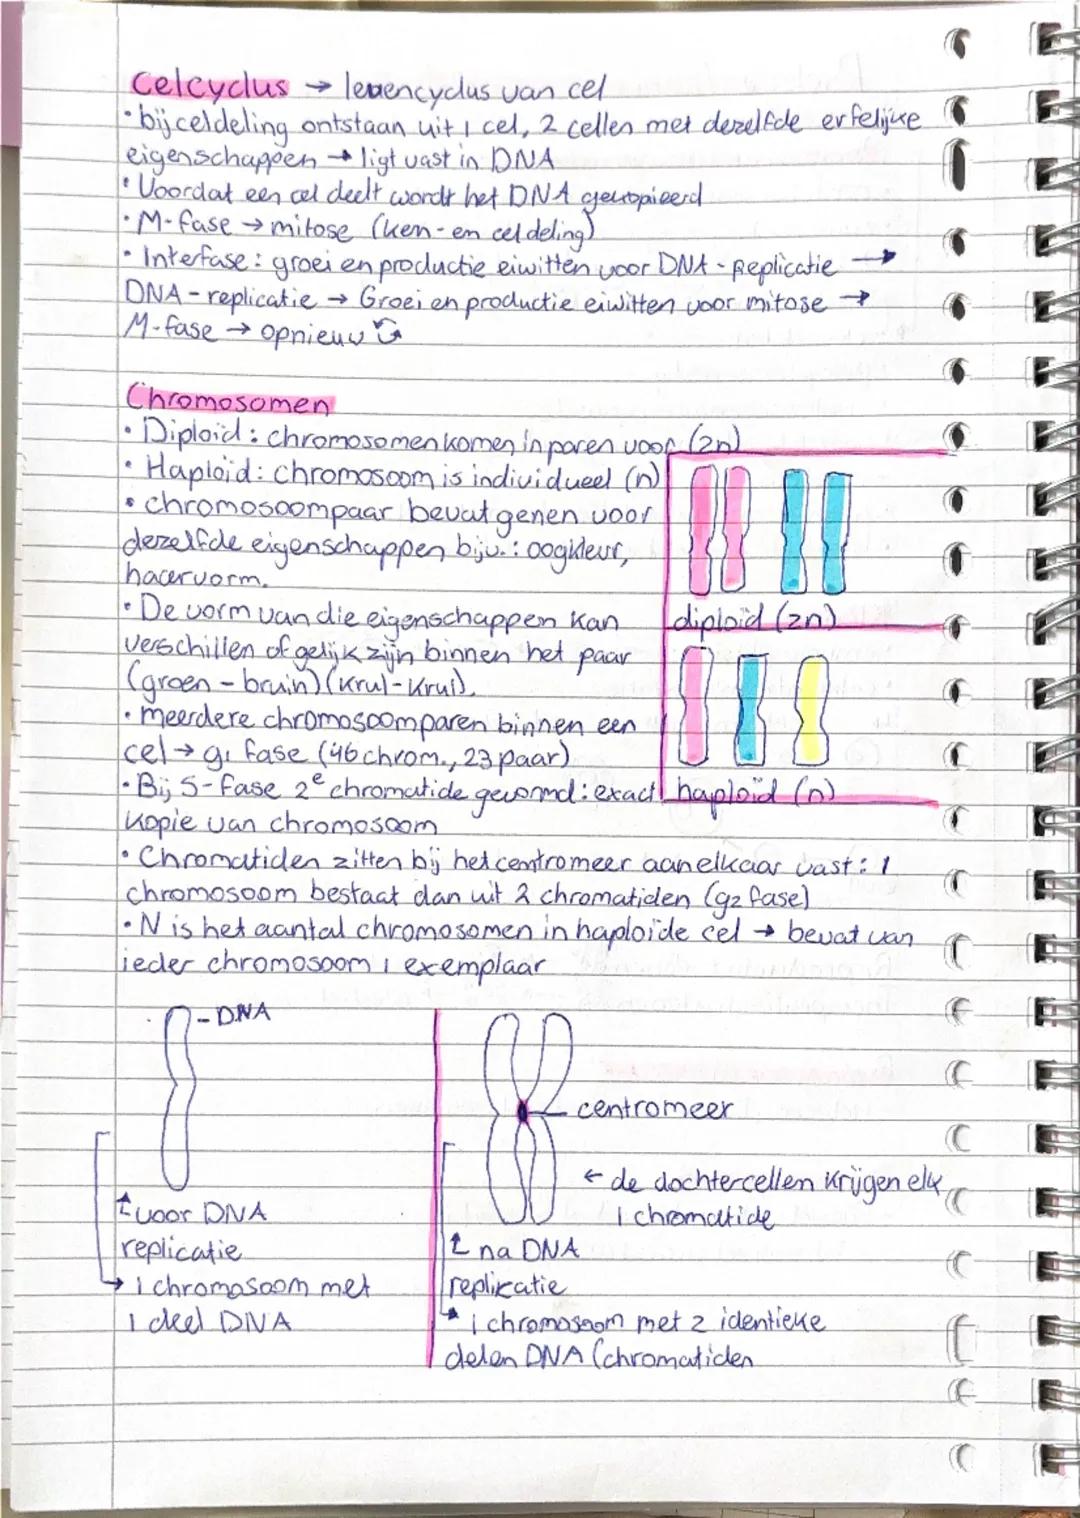 Celcyclus → levencyclus van cel
• bij celdeling ontstaan uit 1 cel, 2 cellen met dezelfde erfelijke
eigenschappen → ligt vast in DNA
• Voordat een cel deelt wordt het DNA gekopieerd
• M-fase → mitose (kern- en celdeling)
• Interfase: groei en productie eiwitten voor DNA-replicatie →
DNA-replicatie → Groei en productie eiwitten voor mitose →
M-fase → opnieuw
Chromosomen
• Diploïd: chromosomen komen in paren voor (2n)
• Haploïd: chromosoom is individueel (n)
• chromosoompaar bevat genen voor
dezelfde eigenschappen bijv.: oogkleur,
haarvorm.
• De vorm van die eigenschappen kan
verschillen of gelijk zijn binnen het paar
(groen-bruin) (krul-krul).
• meerdere chromosoomparen binnen een
cel → g1 fase (46 chrom., 23 paar)
diploïd (2n)
haploïd (n)
• Bij S-fase 2e chromatide gevormd: exact
kopie van chromosoom
• Chromatiden zitten bij het centromeer aan elkaar vast: 1
chromosoom bestaat dan uit 2 chromatiden (g2 fase)
• N is het aantal chromosomen in haploïde cel → bevat van
ieder chromosoom 1 exemplaar
- DNA
↑ voor DNA
replicatie
→ 1 chromosoom met
1 deel DNA
centromeer
← de dochtercellen krijgen elk
1 chromatide
↑ na DNA
replicatie
→ 1 chromosoom met 2 identieke
delen DNA (chromatiden